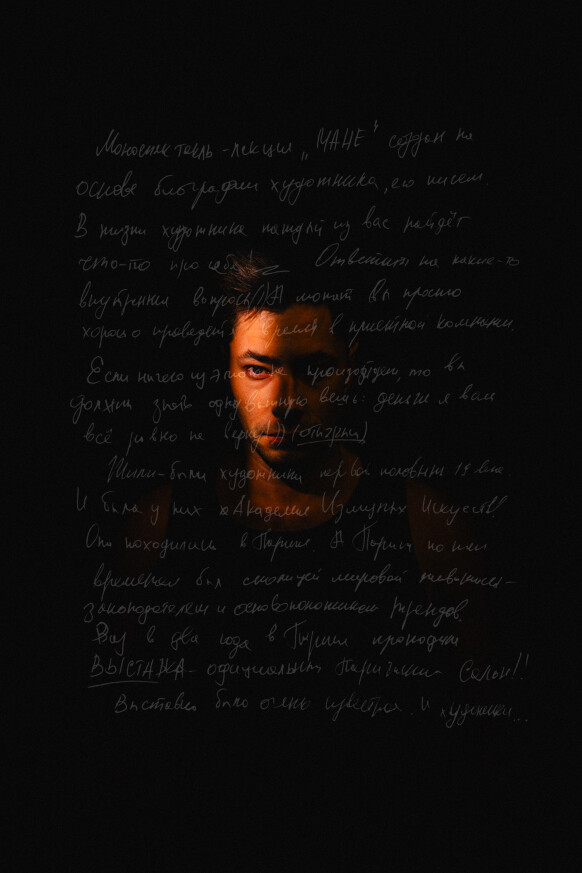 Моноспектакль-лекция „МАНЕ" создан на
основе биографии художника, его писем.
В жизни художника каждый из вас найдёт
что-то про себя Ответит на какие-то
внутренние вопросы)) А может вы просто
хорошо проведёте время в приятной компании.
Если ничего из этого не произойдет, то вы
должны знать одну важную вещь: деньги я вам
всё равно не верну)) (отыграл)
Жили-были художники первой половины 19 века.
И была у них Академия Изящных Искусств!
Они находились в Париже. А Париж по тем
временам был столицей мировой живописи-
законодателем и основоположником трендов.
Раз в два года в Париже проходила
ВЫСТАВКА - официальный Парижский Салон!!
Выставка была очень известна. И художники...